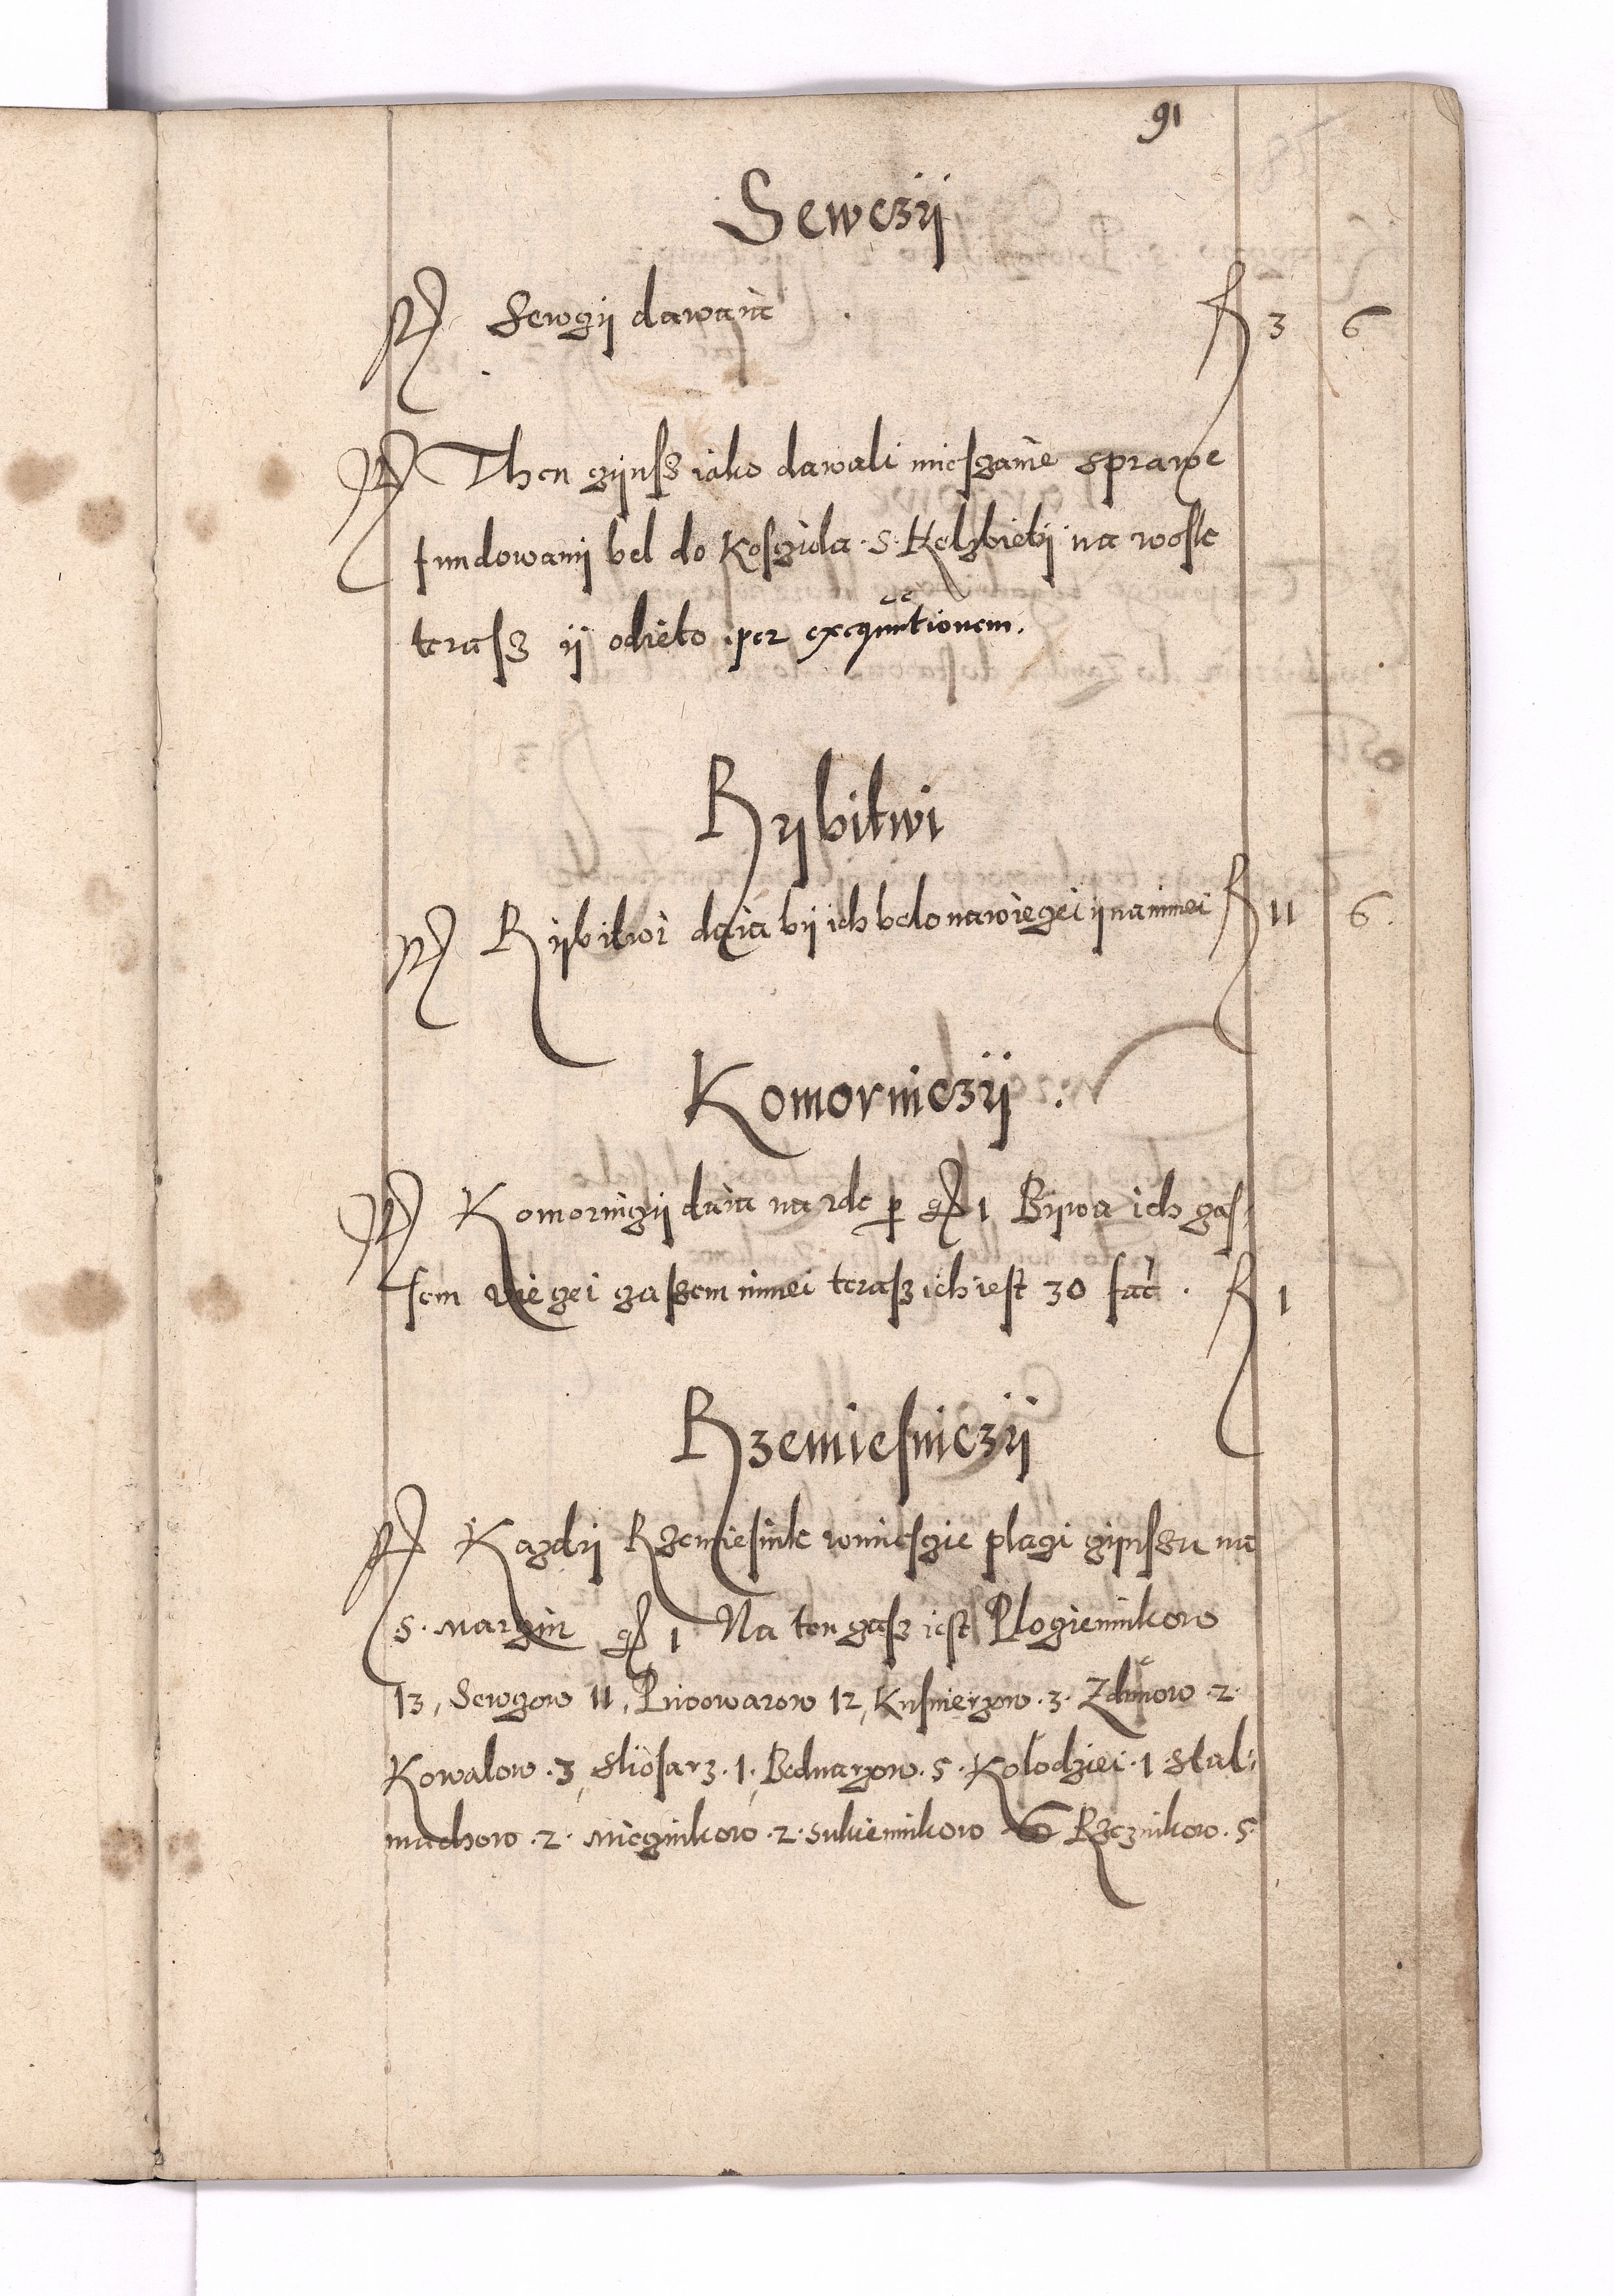 91
Sewczÿ
Sewczÿ dawaia fl 3 6
Then czÿnsz iako dawali miesczanie sprawe
fundowanÿ bel do Kosczíola S. Helzbietÿ na woske
terasz ÿ odieto per exequutionem.
Rÿbitwi
Rÿbitwi daia bÿ ich belo nawieczei ÿ namnei fl 11 6
Komorniczÿ
Komorniczÿ daia na rok per gr 1 Bÿwa ich czas-
sem wieczei czassem mnei terasz ich iest 30 facit fl 1
Rzemiesniczÿ
Kazdÿ Rzemiesnik w miesczie placzi czÿnszu na
S. Marczin gr 1 Na ten czasz iest Plocziennikow
13, Sewczow 11, Piwowarow 12, Kusnierzow 3. Zdunow 2.
Kowalow 3, Sliosarz 1, Bednarzow 5. Kolodziei 1 Stal-
machow 2. Miecznikow 2. Sukiennikow 6 Rzeznikow 5.